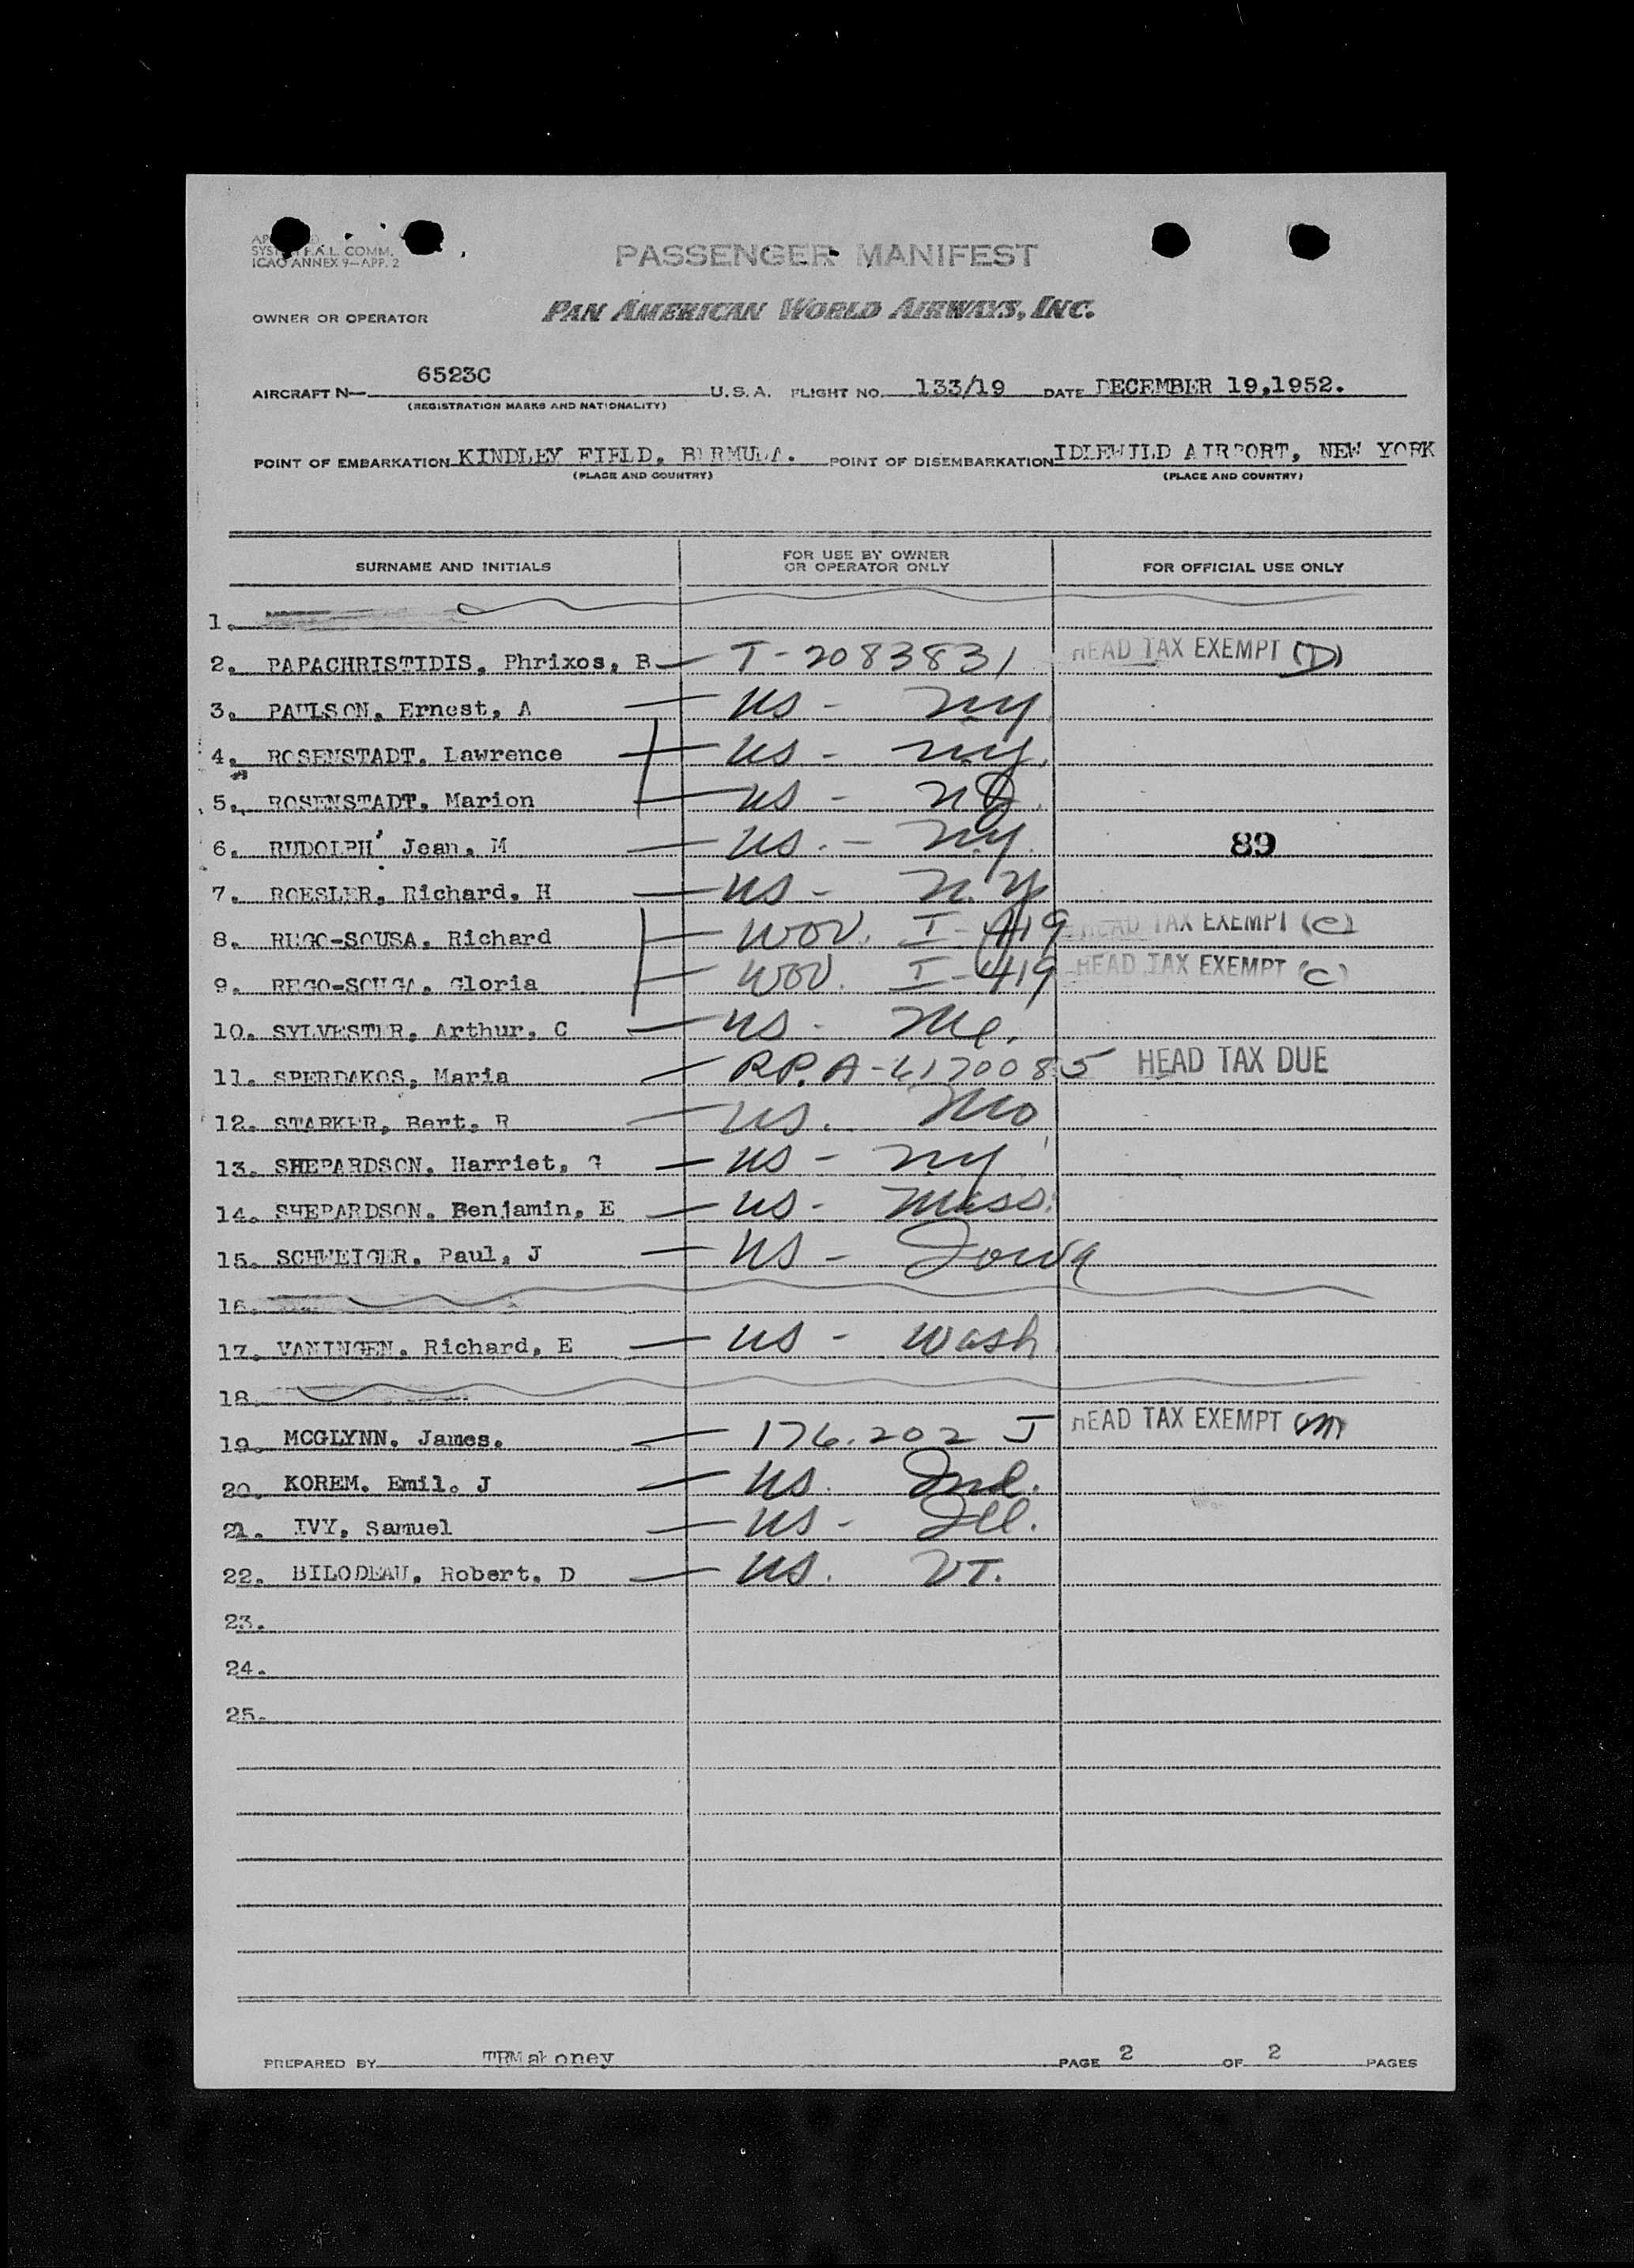 SYSTEM F.A.L. COMM.
ICAO ANNEX 9—APP. 2
PASSENGER MANIFEST
OWNER OR OPERATOR PAN AMERICAN WORLD AIRWAYS, INC.
AIRCRAFT N— 6523C U.S.A. FLIGHT NO. 133/19 DATE DECEMBER 19,1952.
(REGISTRATION MARKS AND NATIONALITY)
POINT OF EMBARKATION KINDLEY FIELD, BERMUDA. POINT OF DISEMBARKATION IDLEWILD AIRPORT, NEW YORK
(PLACE AND COUNTRY) (PLACE AND COUNTRY)
SURNAME AND INITIALS FOR USE BY OWNER OR OPERATOR ONLY FOR OFFICIAL USE ONLY
1.
2. PAPACHRISTIDIS, Phrixos, B — T-2083831 HEAD TAX EXEMPT (D)
3. PAULSON, Ernest, A — US - NY
4. ROSENSTADT, Lawrence — US - NY.
5. ROSENSTADT, Marion — US - NJ.
6. RUDOLPH' Jean, M — US. - NY. 89
7. ROESLER, Richard, H — US - N.Y
8. REGO-SOUSA, Richard — WOV. I-419 HEAD TAX EXEMPT (C)
9. REGO-SOUSA, Gloria — WOV. I-419 HEAD TAX EXEMPT (C)
10. SYLVESTER, Arthur, C — US - Me.
11. SPERDAKOS, Maria — R.P. A-6170085 HEAD TAX DUE
12. STARKER, Bert, R — US. Mo
13. SHEPARDSON, Harriet, G — US - NY
14. SHEPARDSON, Benjamin, E — US - Mass.
15. SCHWEIGER, Paul, J — US - Iowa
16.
17. VANINGEN, Richard, E — US - Wash
18.
19. MCGLYNN, James. — 176.202 J HEAD TAX EXEMPT
20. KOREM, Emil, J — US. Ind.
21. IVY, Samuel — US - Ill.
22. BILODEAU, Robert, D — US. VT.
23.
24.
25.
PREPARED BY TBMahoney PAGE 2 OF 2 PAGES